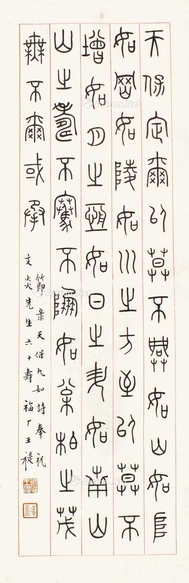 天保定爾以莫不興如山如阜
如岡如陵如川之方至以莫不
增如月之恆如日之升如南山
山之壽不騫不崩如松柏之茂
無不爾或承
節彔天保九如詩奉祝
先生六十壽 福厂王禔